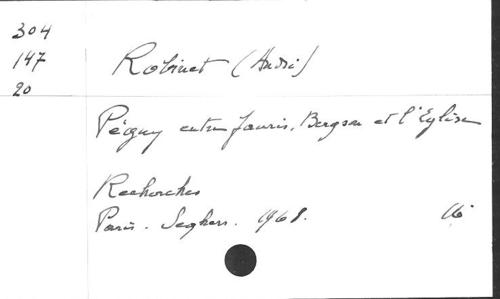 304
147
20
Robinet (André)
Péguy entre Jaurès, Bergson et l'Eglise
Recherches
Paris. Seghers. 1968.